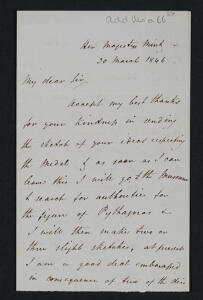 Add Ms a 66
Her Majestys Mint
30 March 1846
My dear Sir,
Accept my best thanks
for your kindness in sending
the sketch of your ideas respecting
the Medal & as soon as I can
leave this I will go to the Museum
to search for authorities for
the figure of Pythagoras &
I will then make two or
three slight sketches, at present
I am a good deal embarrassed
in consequence of two of the dies